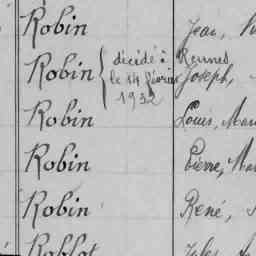 Robin Jean,
Robin { décidé à Rennes
le 14 février
1932 Joseph,
Robin Louis, Mar
Robin Pierre, Ma
Robin René,
Roblot Jules